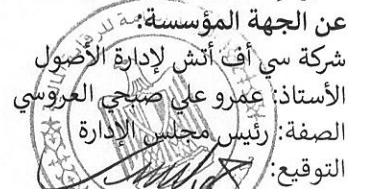 عن الجهة المؤسسة:
شركة سي أف أتش لإدارة الأصول
الأستاذ: عمرو علي صبحي العروسي
الصفة: رئيس مجلس الإدارة
التوقيع: